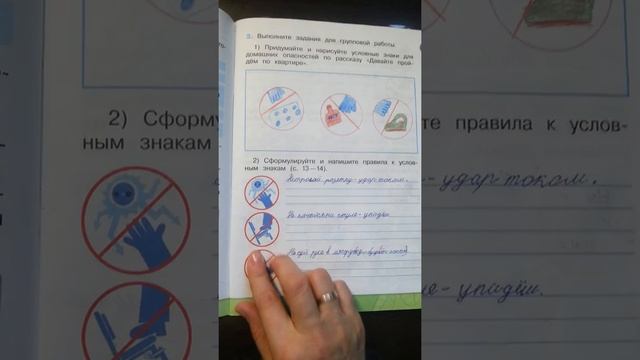 3. Выполните задания для групповой работы.
1) Придумайте и нарисуйте условные знаки для
домашних опасностей по рассказу «Давайте прой-
дём по квартире».
2) Сформулируйте и напишите правила к услов-
ным знакам (с. 13—14).
Не трогай розетку - удар током.
Не качайся на стуле - упадёшь.
Не суй руку в
2) Сформу
ным знакам
те правила к услов-
-удар током.
е-упадёш.